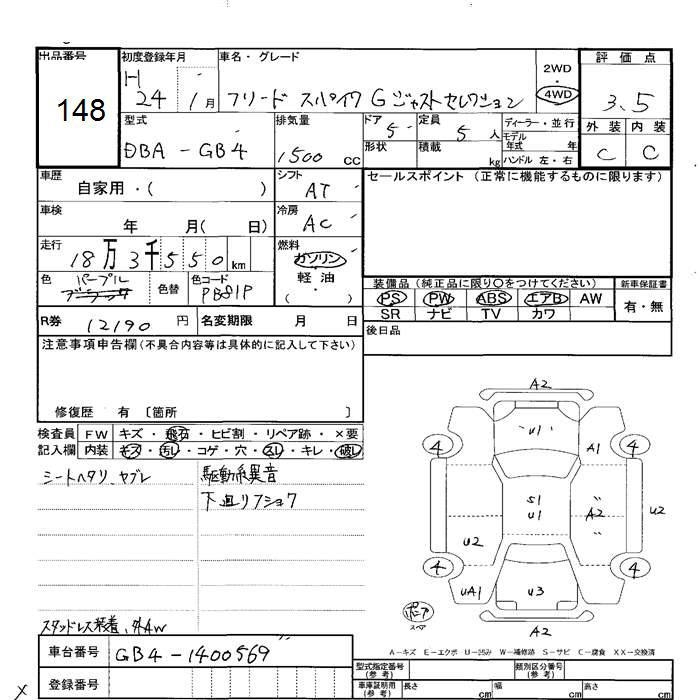 出品番号 初度登録年月 車名・グレード 2WD 評価点
148 H 24 1月 フリード スパイク G ジャストセレクション 4WD 3.5
型式 排気量 ドア 5 定員 5人 ディーラー・並行 外装 内装
DBA - GB4 1500 cc 形状 積載 kg モデル年式 年 C C
ハンドル 左・右
車歴 自家用・( ) シフト AT セールスポイント(正常に機能するものに限ります)
車検 年 月( 日) 冷房 AC
走行 18万3千550km 燃料 ガソリン
色 パープル 色替 色コード PB81P 軽油・( )
装備品(純正品に限り○をつけてください) 新車保証書
PS PW ABS エアB AW 有・無
SR ナビ TV カワ
R券 12190円 名変期限 月 日 後日品
注意事項申告欄(不具合内容等は具体的に記入して下さい)
修復歴 有 〔箇所 〕
検査員 FW キズ・飛石・ヒビ割・リペア跡・×要
記入欄 内装 キズ・汚レ・コゲ・穴・スレ・キレ・破レ
シートヘタリ、ヤブレ 駆動系異音
下廻リフショク
スタッドレス装着、外AW
A2
U1
A1
4 4
S1
U1
A2
U2
U2
4 4
UA1
U3
A2
スペア
A-キズ E-エクボ U-凹み W-補修跡 S-サビ C-腐食 XX-交換済
車台番号 GB4-1400569
登録番号
型式指定番号(参考) 類別区分番号(参考)
車庫証明用(参考) 長さ cm 幅 cm 高さ cm
X